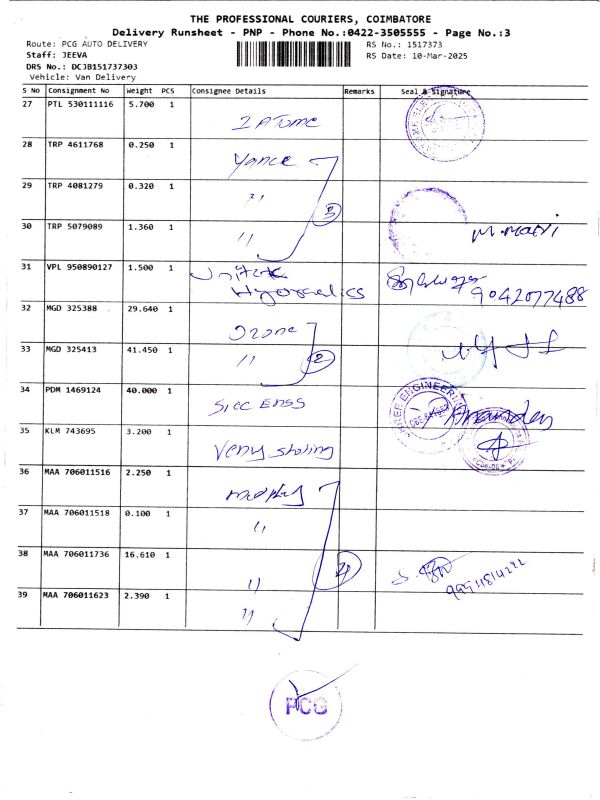 THE PROFESSIONAL COURIERS, COIMBATORE
Delivery Runsheet - PNP - Phone No.:0422-3505555 - Page No.:3
Route: PCG AUTO DELIVERY
RS No.: 1517373
Staff: JEEVA
RS Date: 10-Mar-2025
DRS No.: DCJB151737303
Vehicle: Van Delivery
S No Consignment No Weight PCS Consignee Details Remarks Seal & Signature
27 PTL 530111116 5.700 1
28 TRP 4611768 0.250 1 Yance
29 TRP 4081279 0.320 1 " 3
30 TRP 5079089 1.360 1 "
31 VPL 950890127 1.500 1 9042077488
32 MGD 325388 29.640 1 Ozone
33 MGD 325413 41.450 1 " 2
34 PDM 1469124 40.000 1 ENGINEERING
35 KLM 743695 3.200 1
36 MAA 706011516 2.250 1
37 MAA 706011518 0.100 1 "
38 MAA 706011736 16.610 1 "
39 MAA 706011623 2.390 1 "
PCG